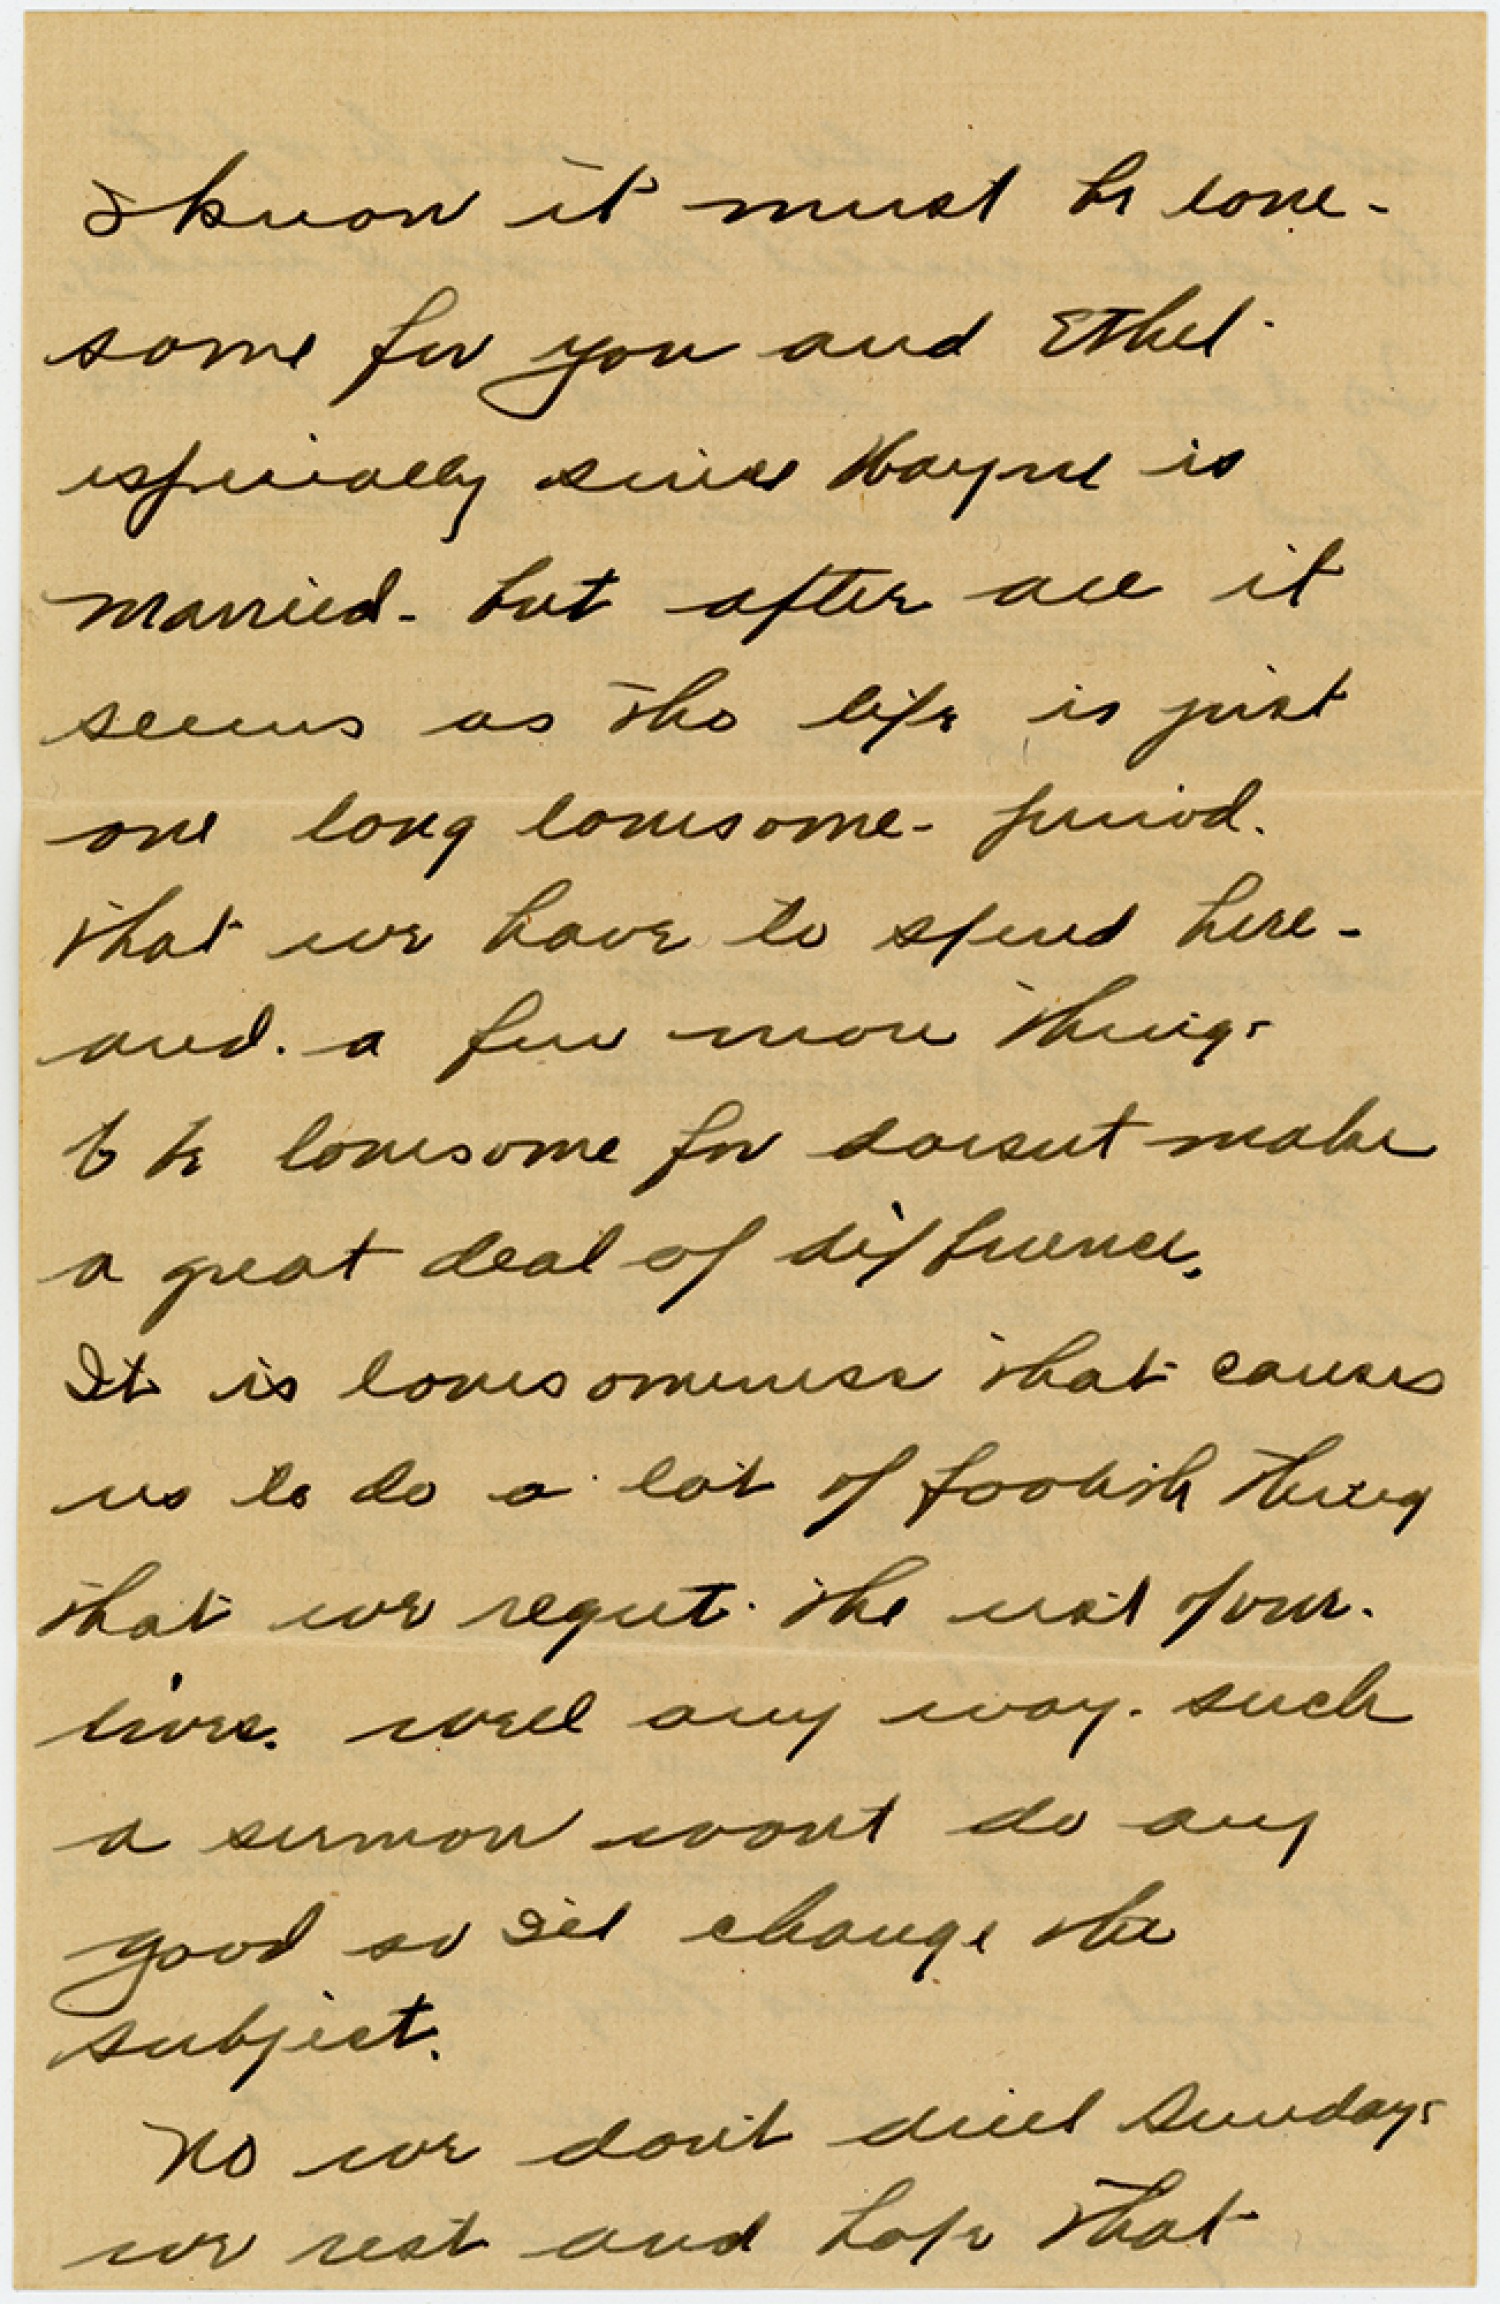 I know it must be lone-
some for you and Ethel
especially since Wayne is
married- but after all it
seems as tho life is just
one long lonesome- period.
that we have to spend here-
and. a few more things
to be lonesome for doesnt make
a great deal of difference.
It is lonesomeness that causes
us to do a lot of foolish things
that we regret. the rest of our.
lives. well any way. such
a sermon wont do any
good so I'll change the
subject.
No we don't drill Sundays
we rest and hope that